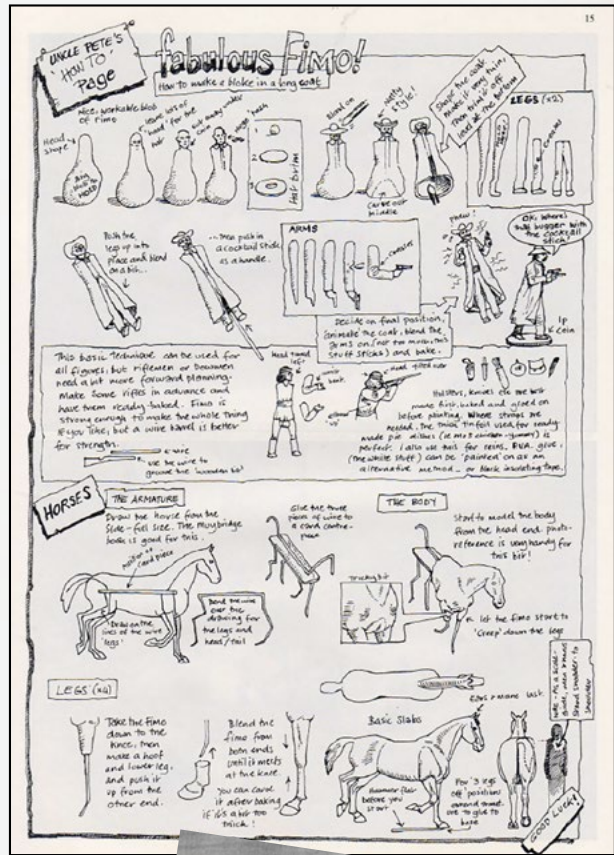 15
UNCLE PETE'S
'HOW TO'
PAGE
fabulous Fimo!
How to make a bloke in a long coat
Nice, workable blob
of Fimo
Head
shape
leave lots of
'head' for the
hat
Hat brim
1
2
3
Blend on
Natty
style!
Carve out
middle
Shape the coat
make it nice thin,
then trim it off
level at the bottom
LEGS (x2)
Creases
Push the
legs up into
place and blend
on a bit...
...then push in
a cocktail stick
as a handle.
ARMS
creases
phew!
OK, where's
that bugger with
the cocktail
stick?
1p
coin
Decide on final position,
'animate' the coat, blend the
arms on (not too much, this
stuff sticks) and bake.
This basic technique can be used for
all figures, but riflemen or bowmen
need a bit more forward planning.
Make some rifles in advance and
have them ready-baked. Fimo is
strong enough to make the whole thing
if you like, but a wire barrel is better
for strength.
wire
use the wire to
groove the 'wooden bit'
Head turned
left
Head tilted over
Holsters, knives etc are best
made first, baked and glued on
before painting. Where straps are
needed, the thick tinfoil used for ready
made pie dishes
perfect. I also use this for reins. P.V.A. glue,
(the white stuff) can be 'painted' on as an
alternative method - or black insulating tape.
HORSES
THE ARMATURE
Draw the horse from the
side - full size. The Muybridge
book is good for this.
position of
card piece
Draw on the
lines of the wire
'legs'
Bend the wire
over the
drawing for
the legs and
head/tail
Glue the three
pieces of wire to
a card centre-
piece
THE BODY
Start to model the body
from the head end. Photo-
reference is very handy for
this bit!
Tricky bit
let the fimo start to
'creep' down the legs
LEGS (x4)
Take the Fimo
down to the
knee, then
make a hoof
and lower leg,
and push it
up from the
other end.
Blend the
fimo from
both ends
until it meets
at the knee.
You can carve
it after baking
if it's a bit too
thick!
Ears & mane last.
Basic Slabs
Hammer flat
before you
start
For '3 legs
off' positions
to glue to
base
NOTE - As a scale-
guide, men & horses
stand shoulder-to
shoulder
GOOD LUCK!